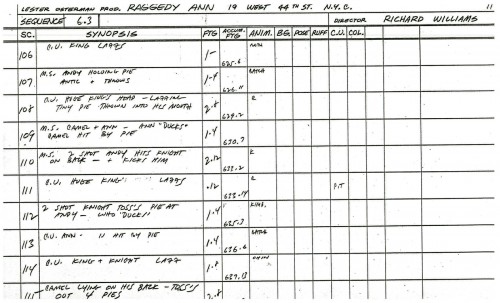 LESTER OSTERMAN PROD. RAGGEDY ANN 19 WEST 44TH ST. N.Y.C. 11
SEQUENCE 6.3 DIRECTOR RICHARD WILLIAMS
SC. SYNOPSIS FTG ACCUM. FTG ANIM. BG. POSE RUFF C.U. COL.
106 C.U. KING LAFFS 1- 625.6
107 M.S. ANDY HOLDING PIE 1.4
ANTIC + THROWS 626.11
108 C.U. HUGE KING'S HEAD - LAFFING 2.8
TINY PIE THROWN INTO HIS MOUTH 629.2
109 M.S. CAMEL + ANN - ANN "DUCKS" 1.4
CAMEL HIT BY PIE 630.7
110 M.S. 2 SHOT ANDY HITS KNIGHT 2.12
ON BACK - + KICKS HIM 633.2
111 C.U. HUGE KING LAFFS .12 633.14
112 2 SHOT KNIGHT TOSS'S PIE AT 1.4
ANDY - WHO "DUCKS" 635.3
113 C.U. ANN - IS HIT BY PIE 1.4 636.6
114 C.U. KING + KNIGHT LAFF 1.8 637.13
115 CAMEL LYING ON HIS BACK - TOSS'S 2.8
OUT 4 PIES